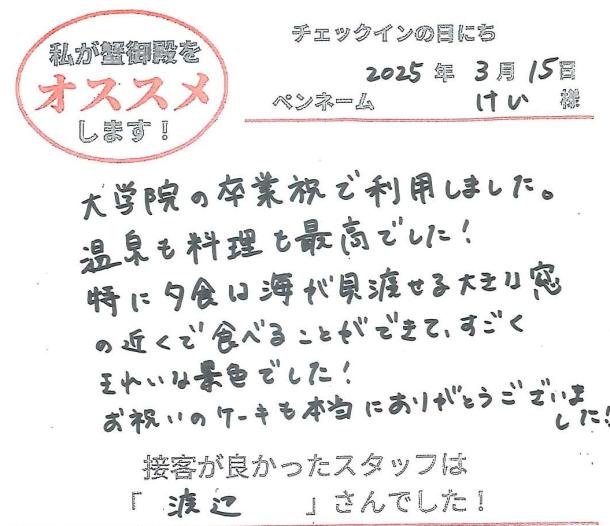 私が蟹御殿を
オススメ
します！
チェックインの日にち
2025年3月15日
ペンネーム けい 様
大学院の卒業祝で利用しました。
温泉も料理も最高でした！
特に夕食は海が見渡せる大きな窓
の近くで食べることができて、すごく
きれいな景色でした！
お祝いのケーキも本当にありがとうございま
した！
接客が良かったスタッフは
「渡辺」さんでした！